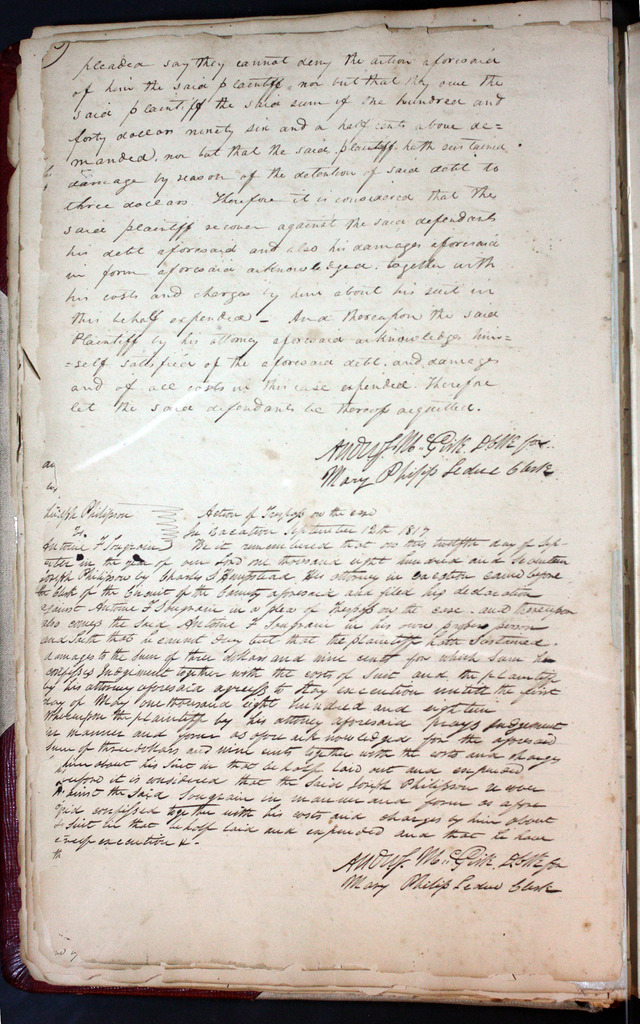 pleaded say they cannot deny the action aforesaid
of him the said plaintiff nor but that they owe the
said plaintiff the said sum of one hundred and
forty dollars ninety six and a half cents above de-
manded, nor but that the said plaintiff hath sustained
damage by reason of the detention of said debt to
three dollars. Therefore it is considered that the
said plaintiff recover against the said defendants
his debt aforesaid and also his damages aforesaid
in form aforesaid acknowledged. together with
his costs and charges by him about his suit in
this behalf expended - And thereupon the said
Plaintiff by his attorney aforesaid acknowledges him-
=self satisfied of the aforesaid debt. and damages
and of all costs in this case expended. Therefore
let the said defendants be thereof acquitted.
McGirk
Mary Philip Leduc Clerk
Joseph Philipson
Action of Trespass on the case
vs.
In Vacation September 12th 1817
Antoine F Saugrain
Be it remembered that on this twelfth day of Sep-
tember in the year of our Lord one thousand eight hundred and seventeen
Joseph Philipson by Charles S Hempstead his attorney in vacation came before
the Clerk of the Circuit of the County aforesaid and filed his declaration
against Antoine F Saugrain in a plea of trespass on the case. and thereupon
also comes the said Antoine F Saugrain in his own proper person
and saith that he cannot deny but that the plaintiff hath sustained
damages to the sum of three dollars and nine cents for which sum he
confesses Judgement together with the costs of suit and the plaintiff
by his attorney aforesaid agrees to stay execution until the first
day of May one thousand eight hundred and eighteen
Whereupon the plaintiff by his attorney aforesaid prays Judgement
in manner and form as aforesaid acknowledged for the aforesaid
sum of three dollars and nine cents together with the costs and charges
him about his suit in that behalf laid out and expended
Therefore it is considered that the said Joseph Philipson recover
against the said Saugrain in manner and form as afore
said confessed together with his costs and charges by him about
suit in that behalf laid and expended and that he have
execution &c.
McGirk
Mary Philip Leduc Clerk